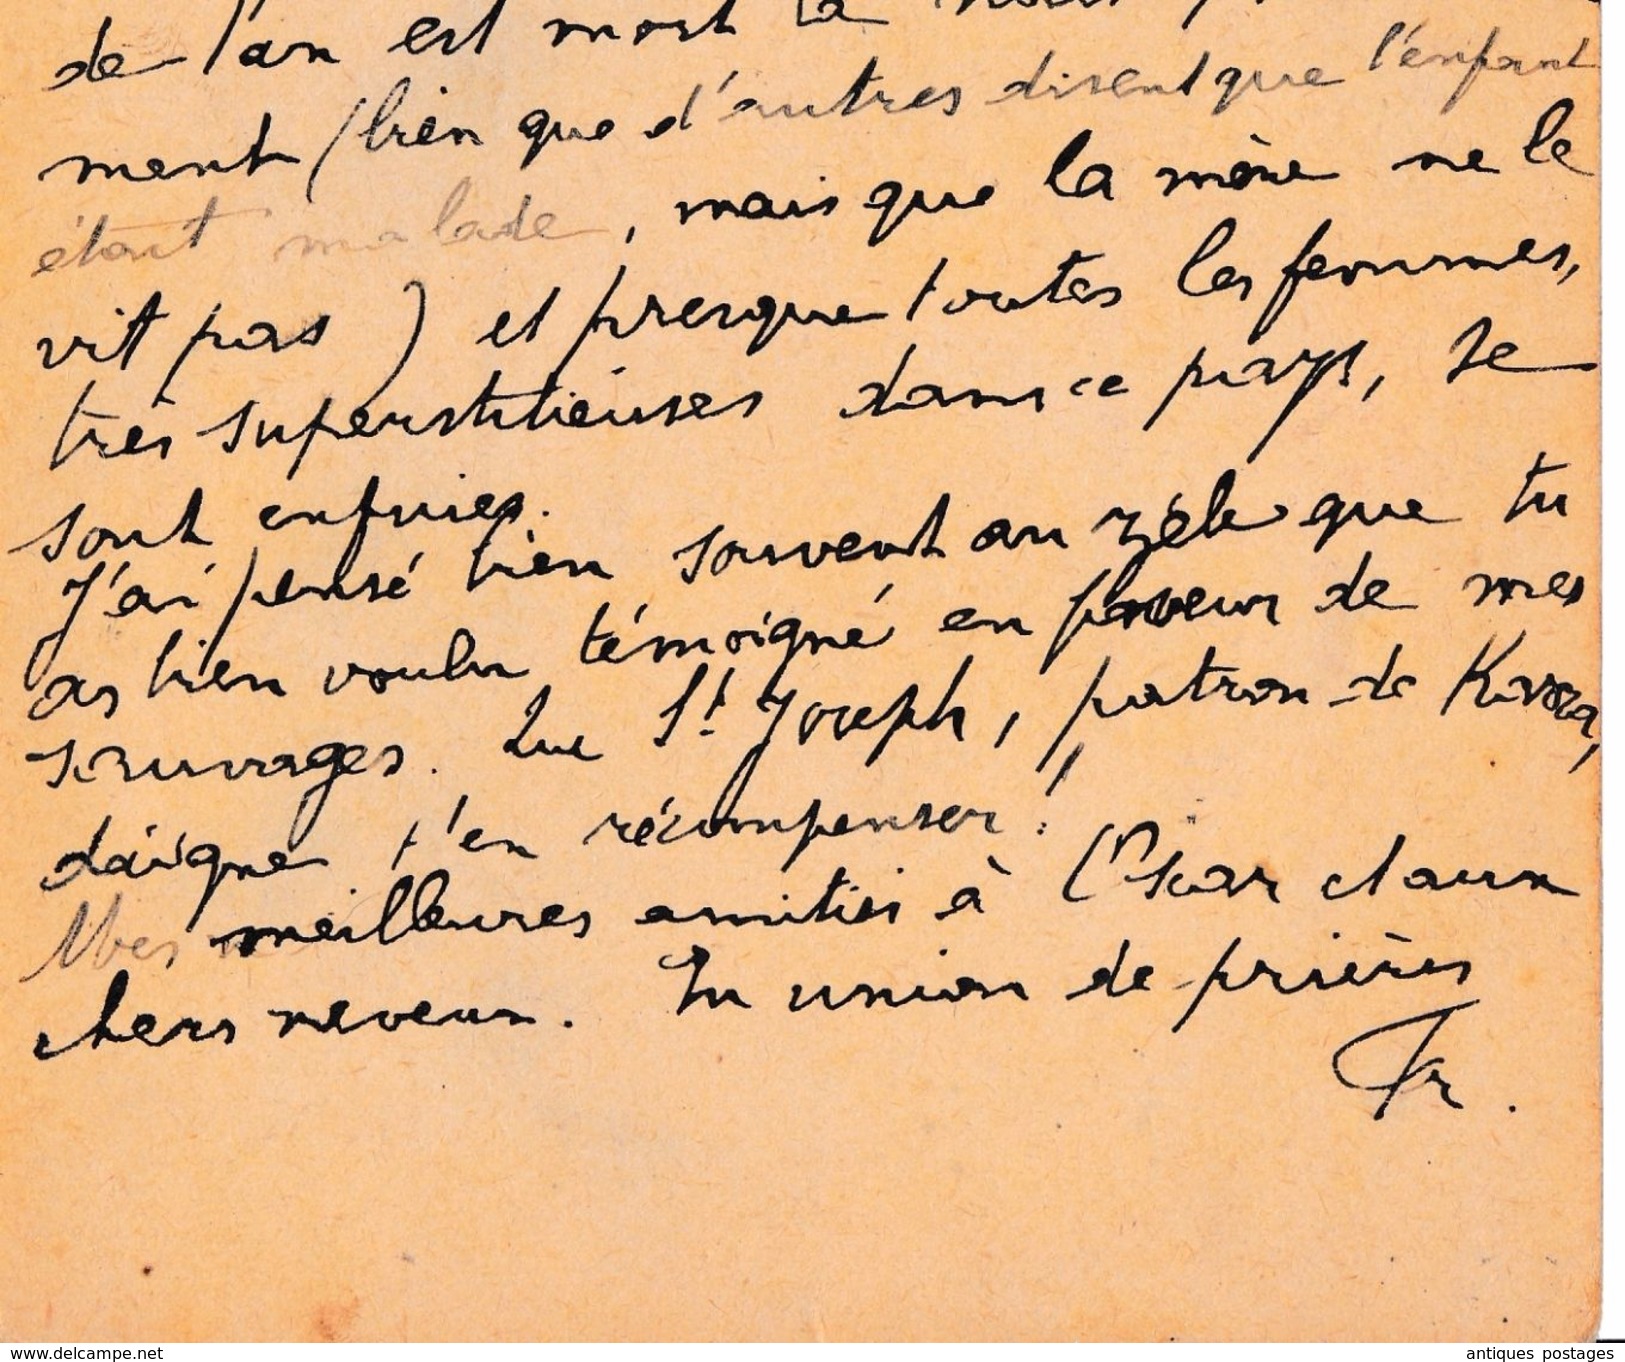 de l'an est mort là
ment (bien que d'autres disent que l'enfant
étant malade, mais que la mère ne le
vit pas) et presque toutes les femmes,
très superstitieuses dans ce pays, se
sont enfuies.
J'ai pensé bien souvent au zèle que tu
as bien voulu témoigné en faveur de mes
sauvages. Que St Joseph, patron de
daigne t'en récompenser!
Mes meilleures amitiés à l'Oscar et aux
chers neveux. En union de prières
Fr.
www.delcampe.net
antiques postages